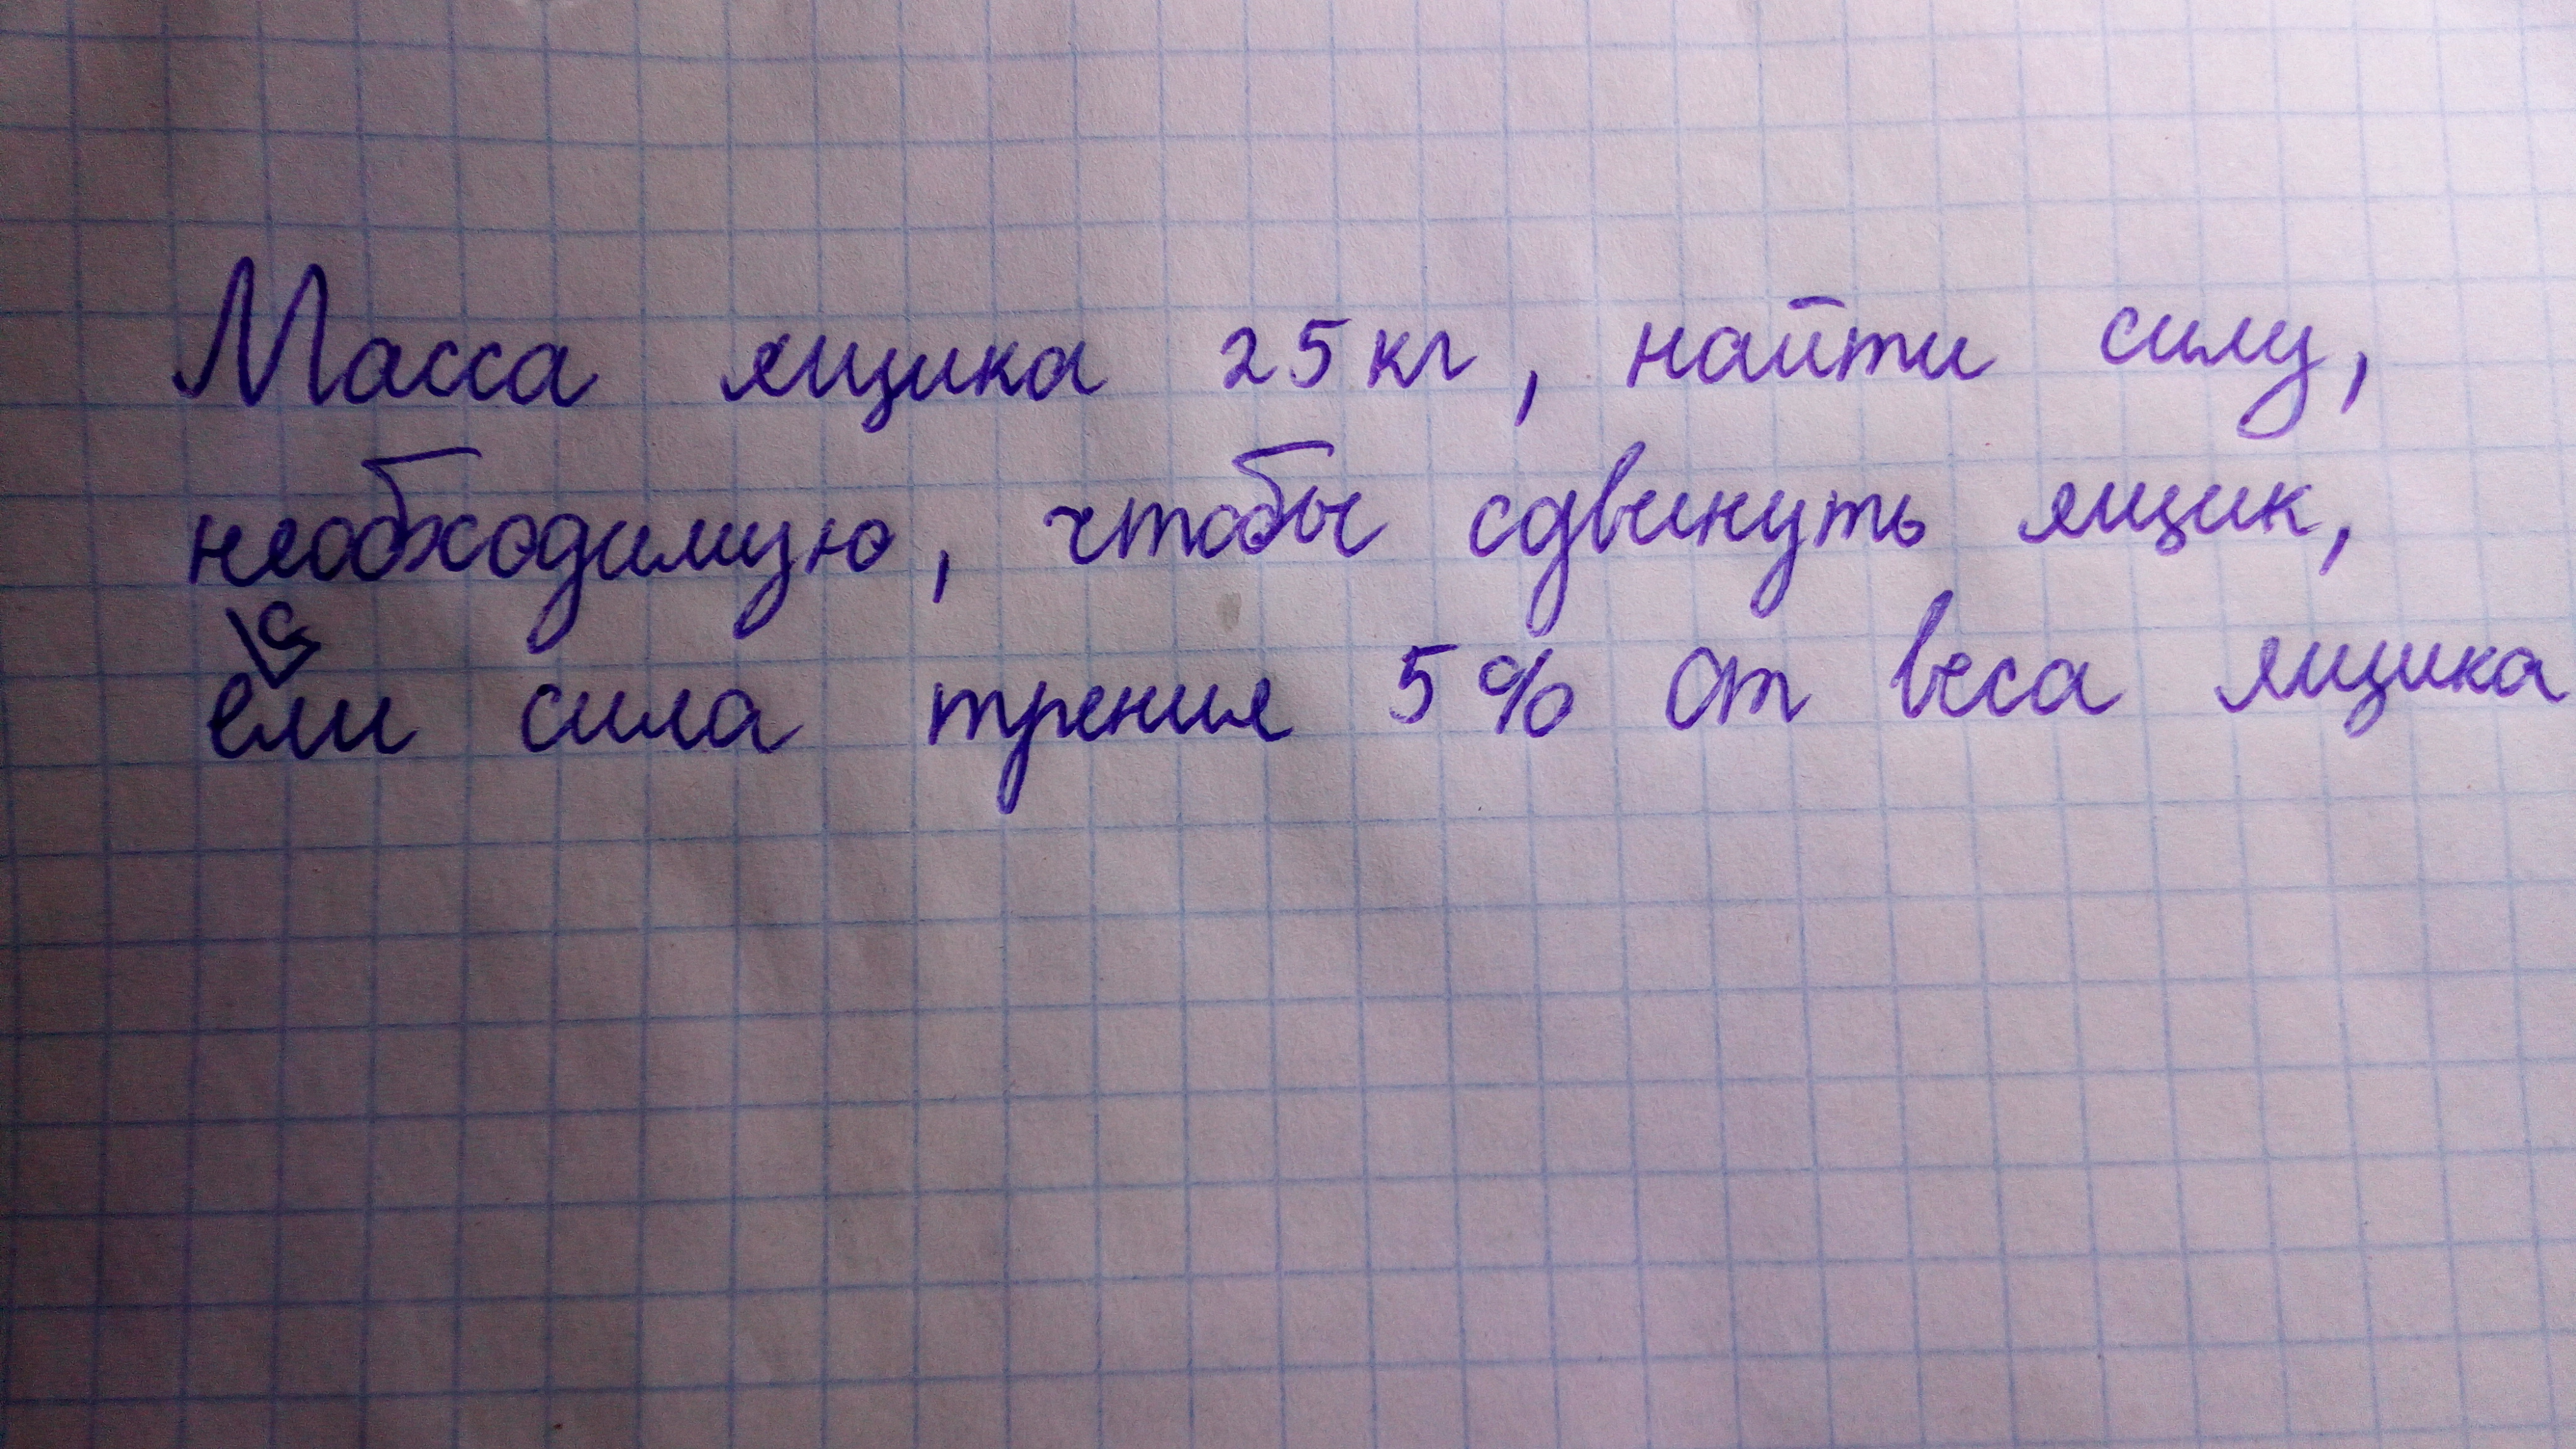 Масса ящика 25кг, найти силу,
необходимую, чтобы сдвинуть ящик,
если сила трения 5% от веса ящика